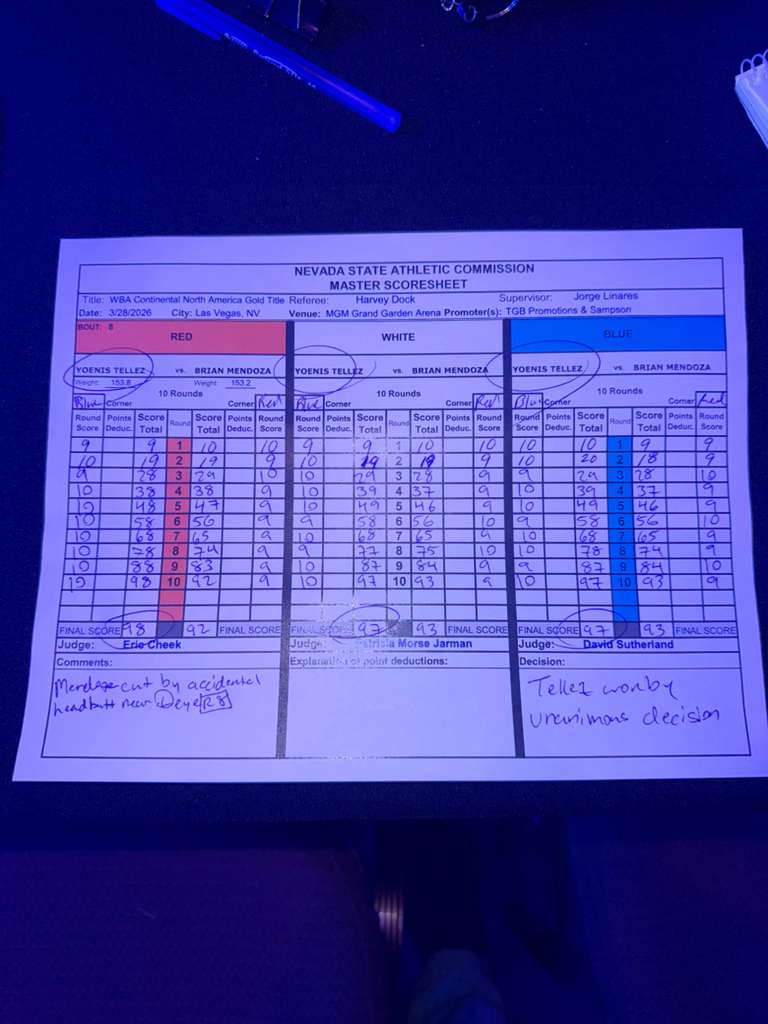 NEVADA STATE ATHLETIC COMMISSION
MASTER SCORESHEET
Title: WBA Continental North America Gold Title Referee: Harvey Dock Supervisor: Jorge Linares
Date: 3/28/2026 City: Las Vegas, NV Venue: MGM Grand Garden Arena Promoter(s): TGB Promotions & Sampson
BOUT: 8
RED WHITE BLUE
YOENIS TELLEZ vs. BRIAN MENDOZA YOENIS TELLEZ vs. BRIAN MENDOZA YOENIS TELLEZ vs. BRIAN MENDOZA
Weight: 153.8 Weight: 153.2
10 Rounds 10 Rounds 10 Rounds
Blue Corner Corner Red Blue Corner Corner Red Blue Corner Corner Red
Round Score Points Deduc. Score Total Round Score Total Points Deduc. Round Score Round Score Points Deduc. Score Total Round Score Total Points Deduc. Round Score Round Score Points Deduc. Score Total Round Score Total Points Deduc. Round Score
9 9 1 10 10 9 9 1 10 10 10 10 1 9 9
10 19 2 19 9 10 19 2 19 9 10 20 2 18 9
9 28 3 29 10 10 29 3 28 9 9 29 3 28 10
10 38 4 38 9 10 39 4 37 9 10 39 4 37 9
10 48 5 47 9 10 49 5 46 9 10 49 5 46 9
10 58 6 56 9 9 58 6 56 10 9 58 6 56 10
10 68 7 65 9 10 68 7 65 9 10 68 7 65 9
10 78 8 74 9 9 77 8 75 10 10 78 8 74 9
10 88 9 83 9 10 87 9 84 9 9 87 9 84 10
10 98 10 92 9 10 97 10 93 9 10 97 10 93 9
FINAL SCORE 98 92 FINAL SCORE FINAL SCORE 97 93 FINAL SCORE FINAL SCORE 97 93 FINAL SCORE
Judge: Eric Cheek Judge: Patricia Morse Jarman Judge: David Sutherland
Comments: Explanation of point deductions: Decision:
Mendoza cut by accidental
headbutt near eye R8
Tellez won by
unanimous decision